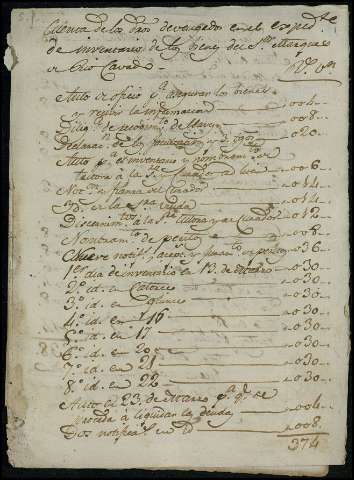 Cuenta de los dros devengados en el exped.te
de inventarios de los bienes del S.or Marques
de Rio Cavado R.s v.on
Auto de oficio p.a asegurar los bienes
y recibir la informacion 004
Dilig.a de recogim.to de llaves 008
020
Auto p.a el inventario y nombram.to de
tutora a la S.ra 006
Not.n y fianza del Curador 014
Yd. de la Sra viuda 014
Discernim.tos a la S.ra tutora y al Curador 012
Nombram.to de perito 006
Nueve notific.s acep.s y juram.to de peritos 036
1.er dia de inventario en 13 de Marzo 030
2.o id. en Catorce 030
3.o id. en Quince 030
4.o id. en 16 030
5.o id. en 17 030
6.o id. en 20 030
7.o id. en 21 030
8.o id. en 22 030
Auto de 23 de Marzo p.a q.e se
proceda a liquidar la deuda 004
Dos notific.s en id. 008
374